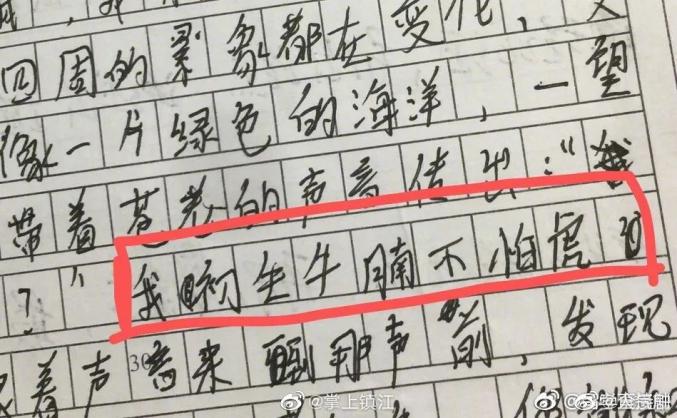 四周的景象都在变化，又
像一片绿色的海洋，一望
带着苍老的声音传出：“
？”我初生牛腩不怕虎的
着声音来到那声前，发现
@掌上镇江